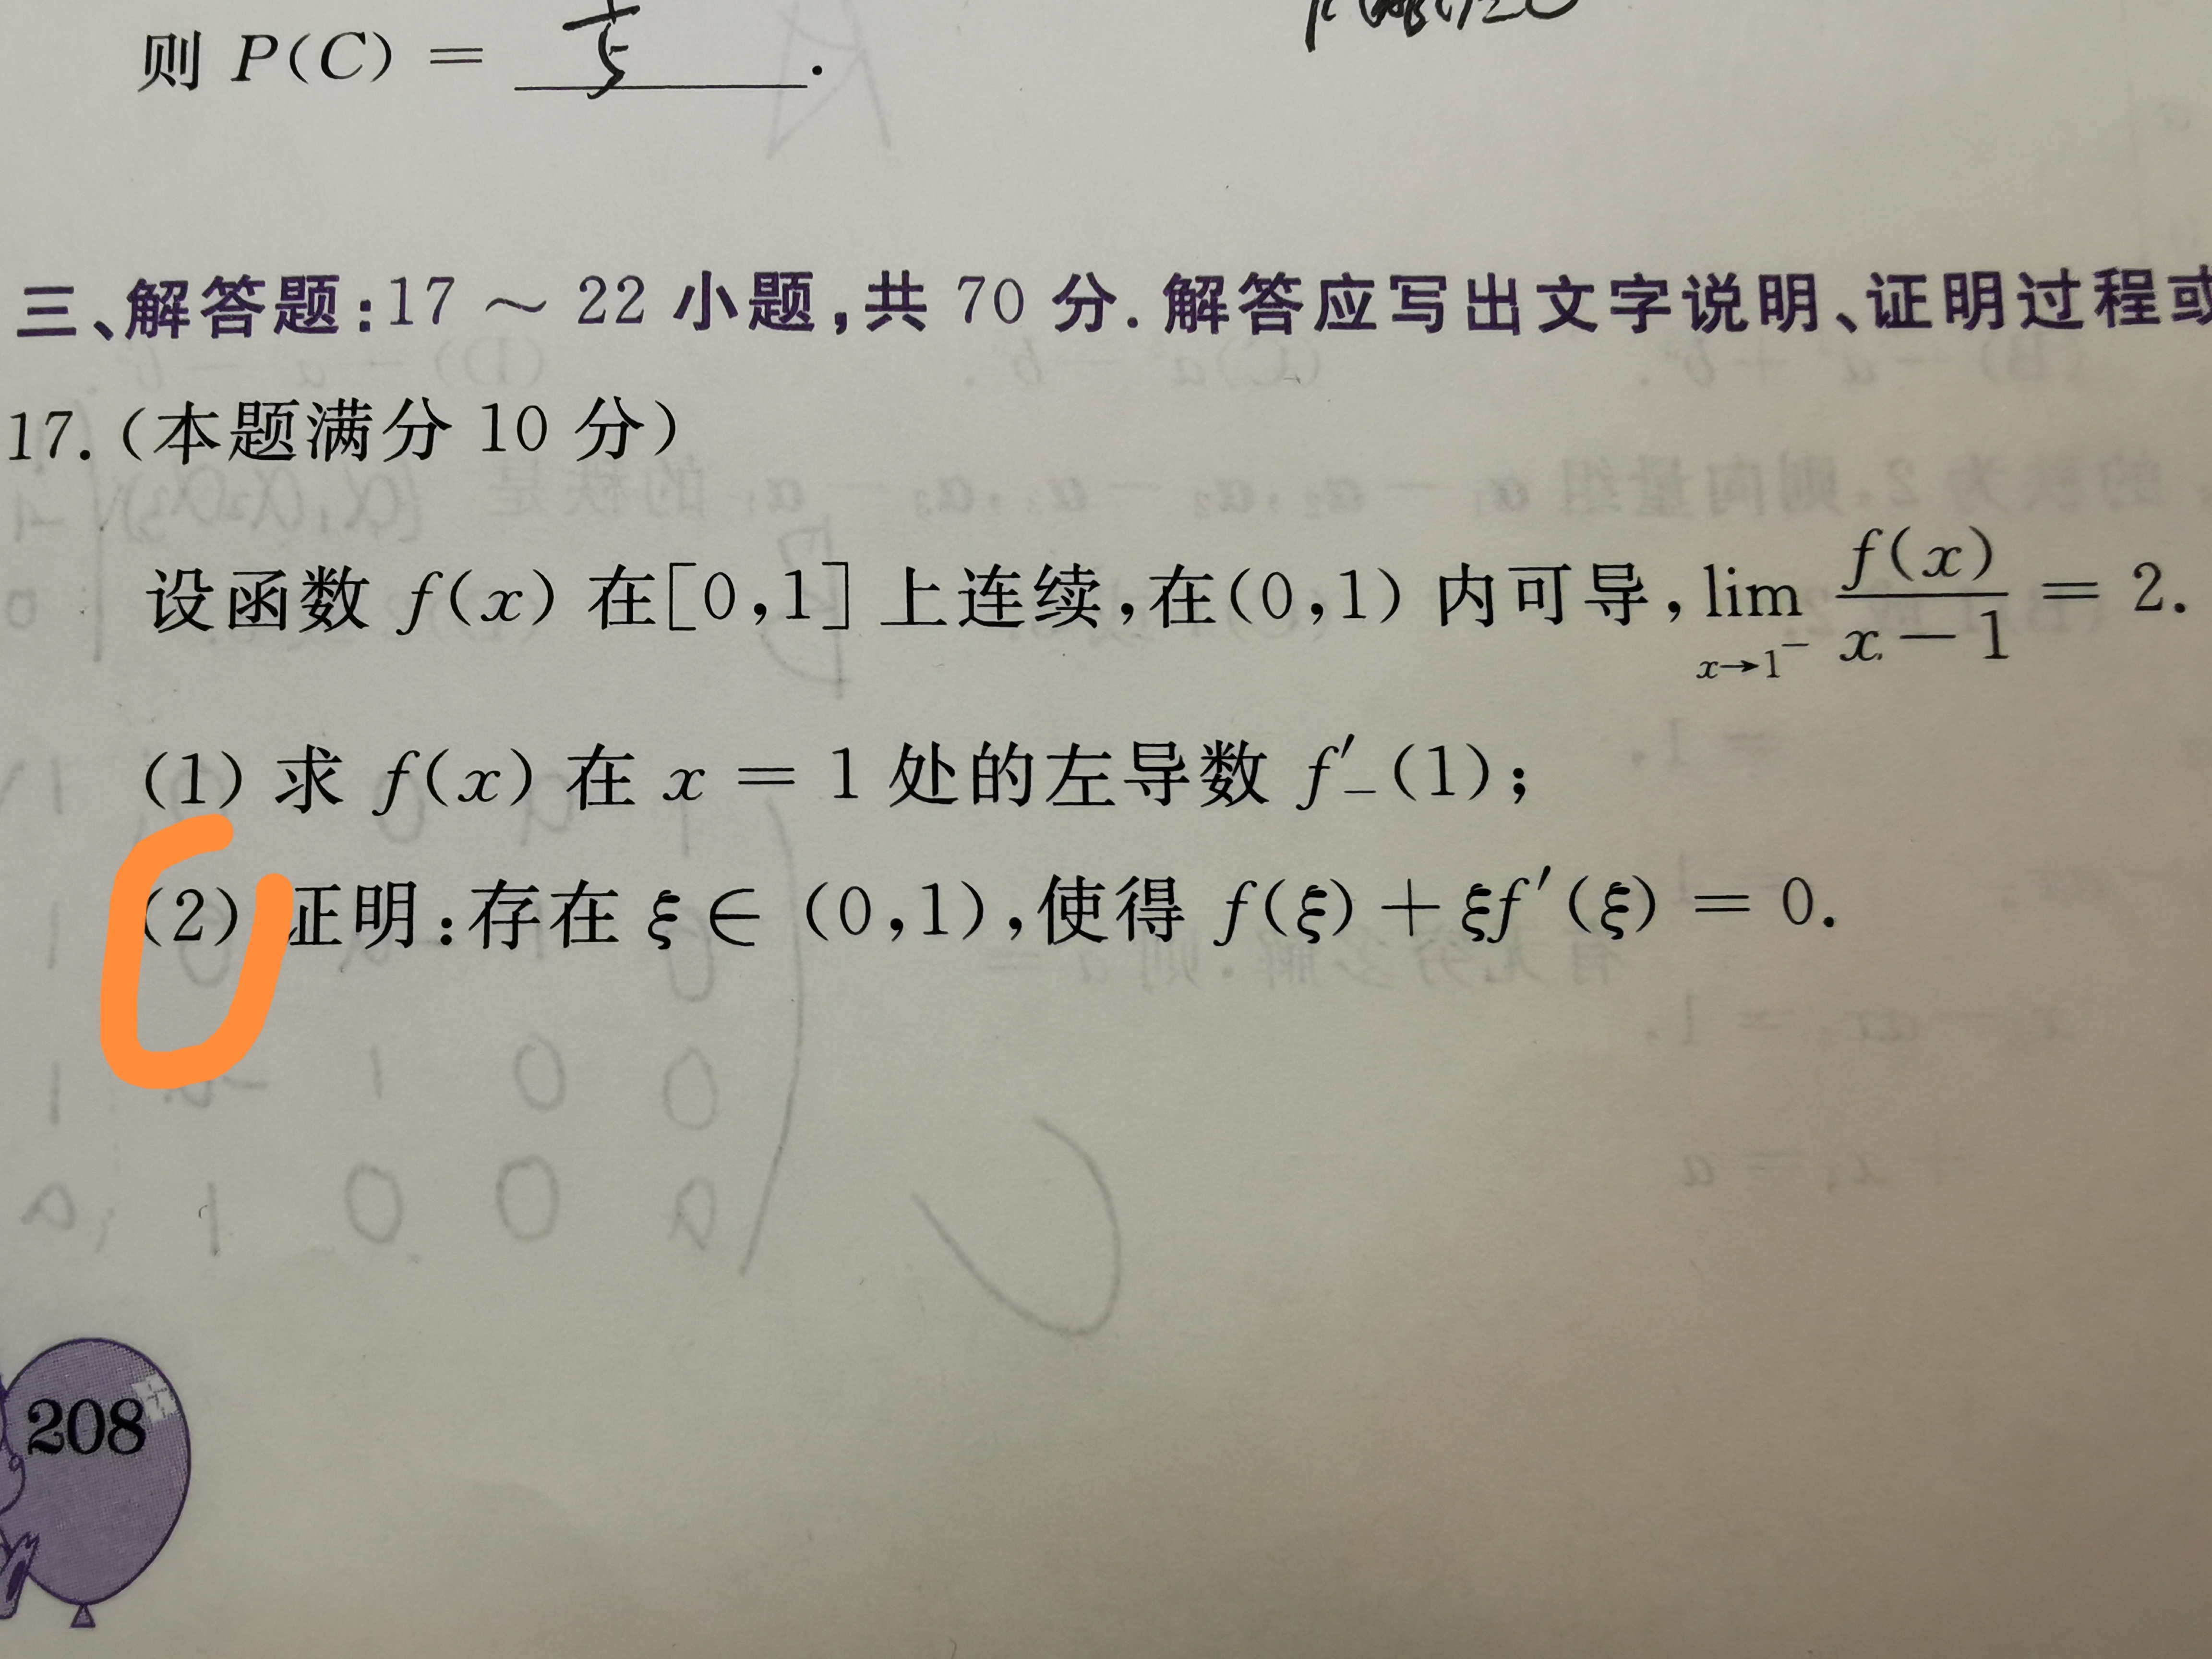 则 P(C) = 1/5 .
三、解答题:17 ~ 22 小题,共 70 分. 解答应写出文字说明、证明过程或
17. (本题满分 10 分)
设函数 f(x) 在[0,1] 上连续,在(0,1) 内可导, lim_{x→1⁻} f(x)/(x−1) = 2.
(1) 求 f(x) 在 x = 1 处的左导数 f′₋(1);
(2) 证明:存在 ξ ∈ (0,1),使得 f(ξ) + ξf′(ξ) = 0.
208